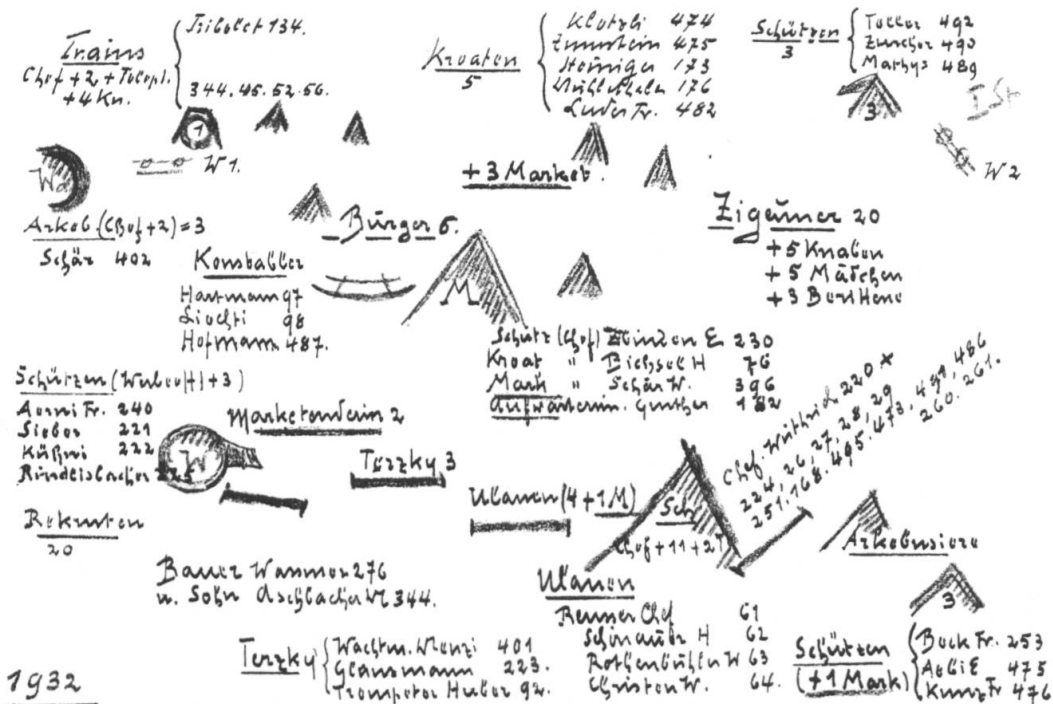 Trains
Chef + 2 + Telepf.
+ 4 Kn.
Tribolet 134.
344. 45. 52. 56.
Kroaten
5
Klötzli 474
Zumstein 475
Steiniger 173
Mühlethaler 176
Luder Fr. 482
Schützen
3
Zürcher 490
Mathys 489
3
I St
1
W 1.
W 2
+ 3 Market.
Arkeb. (Chef + 2) = 3
Schär 402
Bürger 6.
Zigeuner 20
+ 5 Knaben
+ 5 Mädchen
+ 3 Berittene
Konstabler
Hartmann 97
Liechti 98
Hofmann 487.
M
Schütz (Chef) Zbinden E 230
Kroat " Bichsel H 76
Mark " Schär W. 396
Aufwärterin. Gunther 182
Schützen
Aerni Fr. 240
Sieber 221
222
Rindlisbacher 225
W
Marketenderin 2
Terzky 3
Ulanen (4 + 1 M)
Sch
Chef + 11 + 2T
Chef. Wüthrich 220 *
224, 26, 27, 28, 29
251. 168. 495. 473, 491, 486
260. 261.
Rekruten
20
Arkebusiere
3
Bauer Wanner 276
u. Sohn Aschbacher W 344.
Ulanen
Renner Chef 61
H 62
Rothenbühler W 63
Christen W. 64.
Terzky
Wachtm. Wenzi 401
Glausmann 223.
Trompeter Huber 92.
Schützen
(+ 1 Mark)
Beck Fr. 253
Aebi E 475
Kunz Fr 476
1932